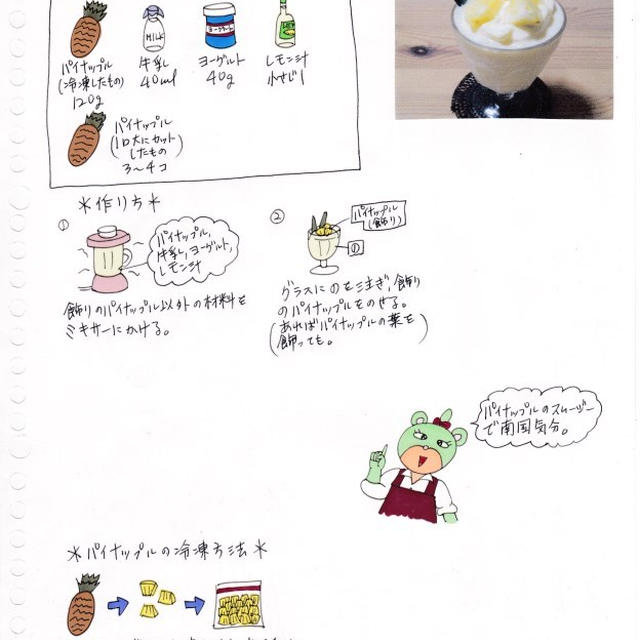 MILK
ヨーグルト
パイナップル
(冷凍したもの)
120g
牛乳
40ml
ヨーグルト
40g
レモン汁
小さじ1
パイナップル
(1口大にカット
したもの)
3〜4コ
*作り方*
①
パイナップル,
牛乳,ヨーグルト,
レモン汁
飾りのパイナップル以外の材料を
ミキサーにかける。
②
パイナップル
(飾り)
の
グラスにのを注ぎ,飾り
のパイナップルをのせる。
(あればパイナップルの葉を
飾っても。)
パイナップルのスムージー
で南国気分。
*パイナップルの冷凍方法*